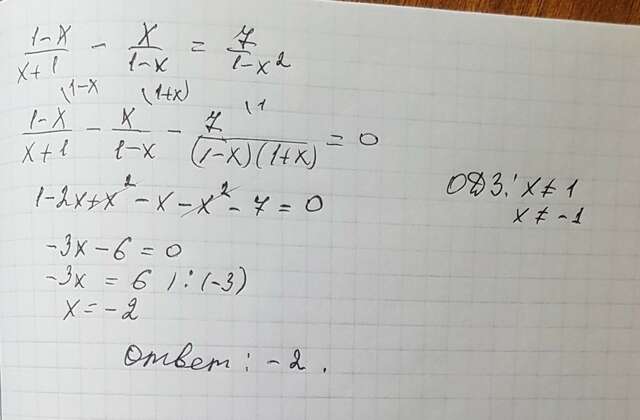 (1-x)/(x+1) - x/(1-x) = 7/(1-x²)
(1-x (1+x) (1
(1-x)/(x+1) - x/(1-x) - 7/((1-x)(1+x)) = 0
1-2x+x² - x - x² - 7 = 0
ОДЗ: x ≠ 1
x ≠ -1
-3x - 6 = 0
-3x = 6 | : (-3)
x = -2
Ответ: -2.